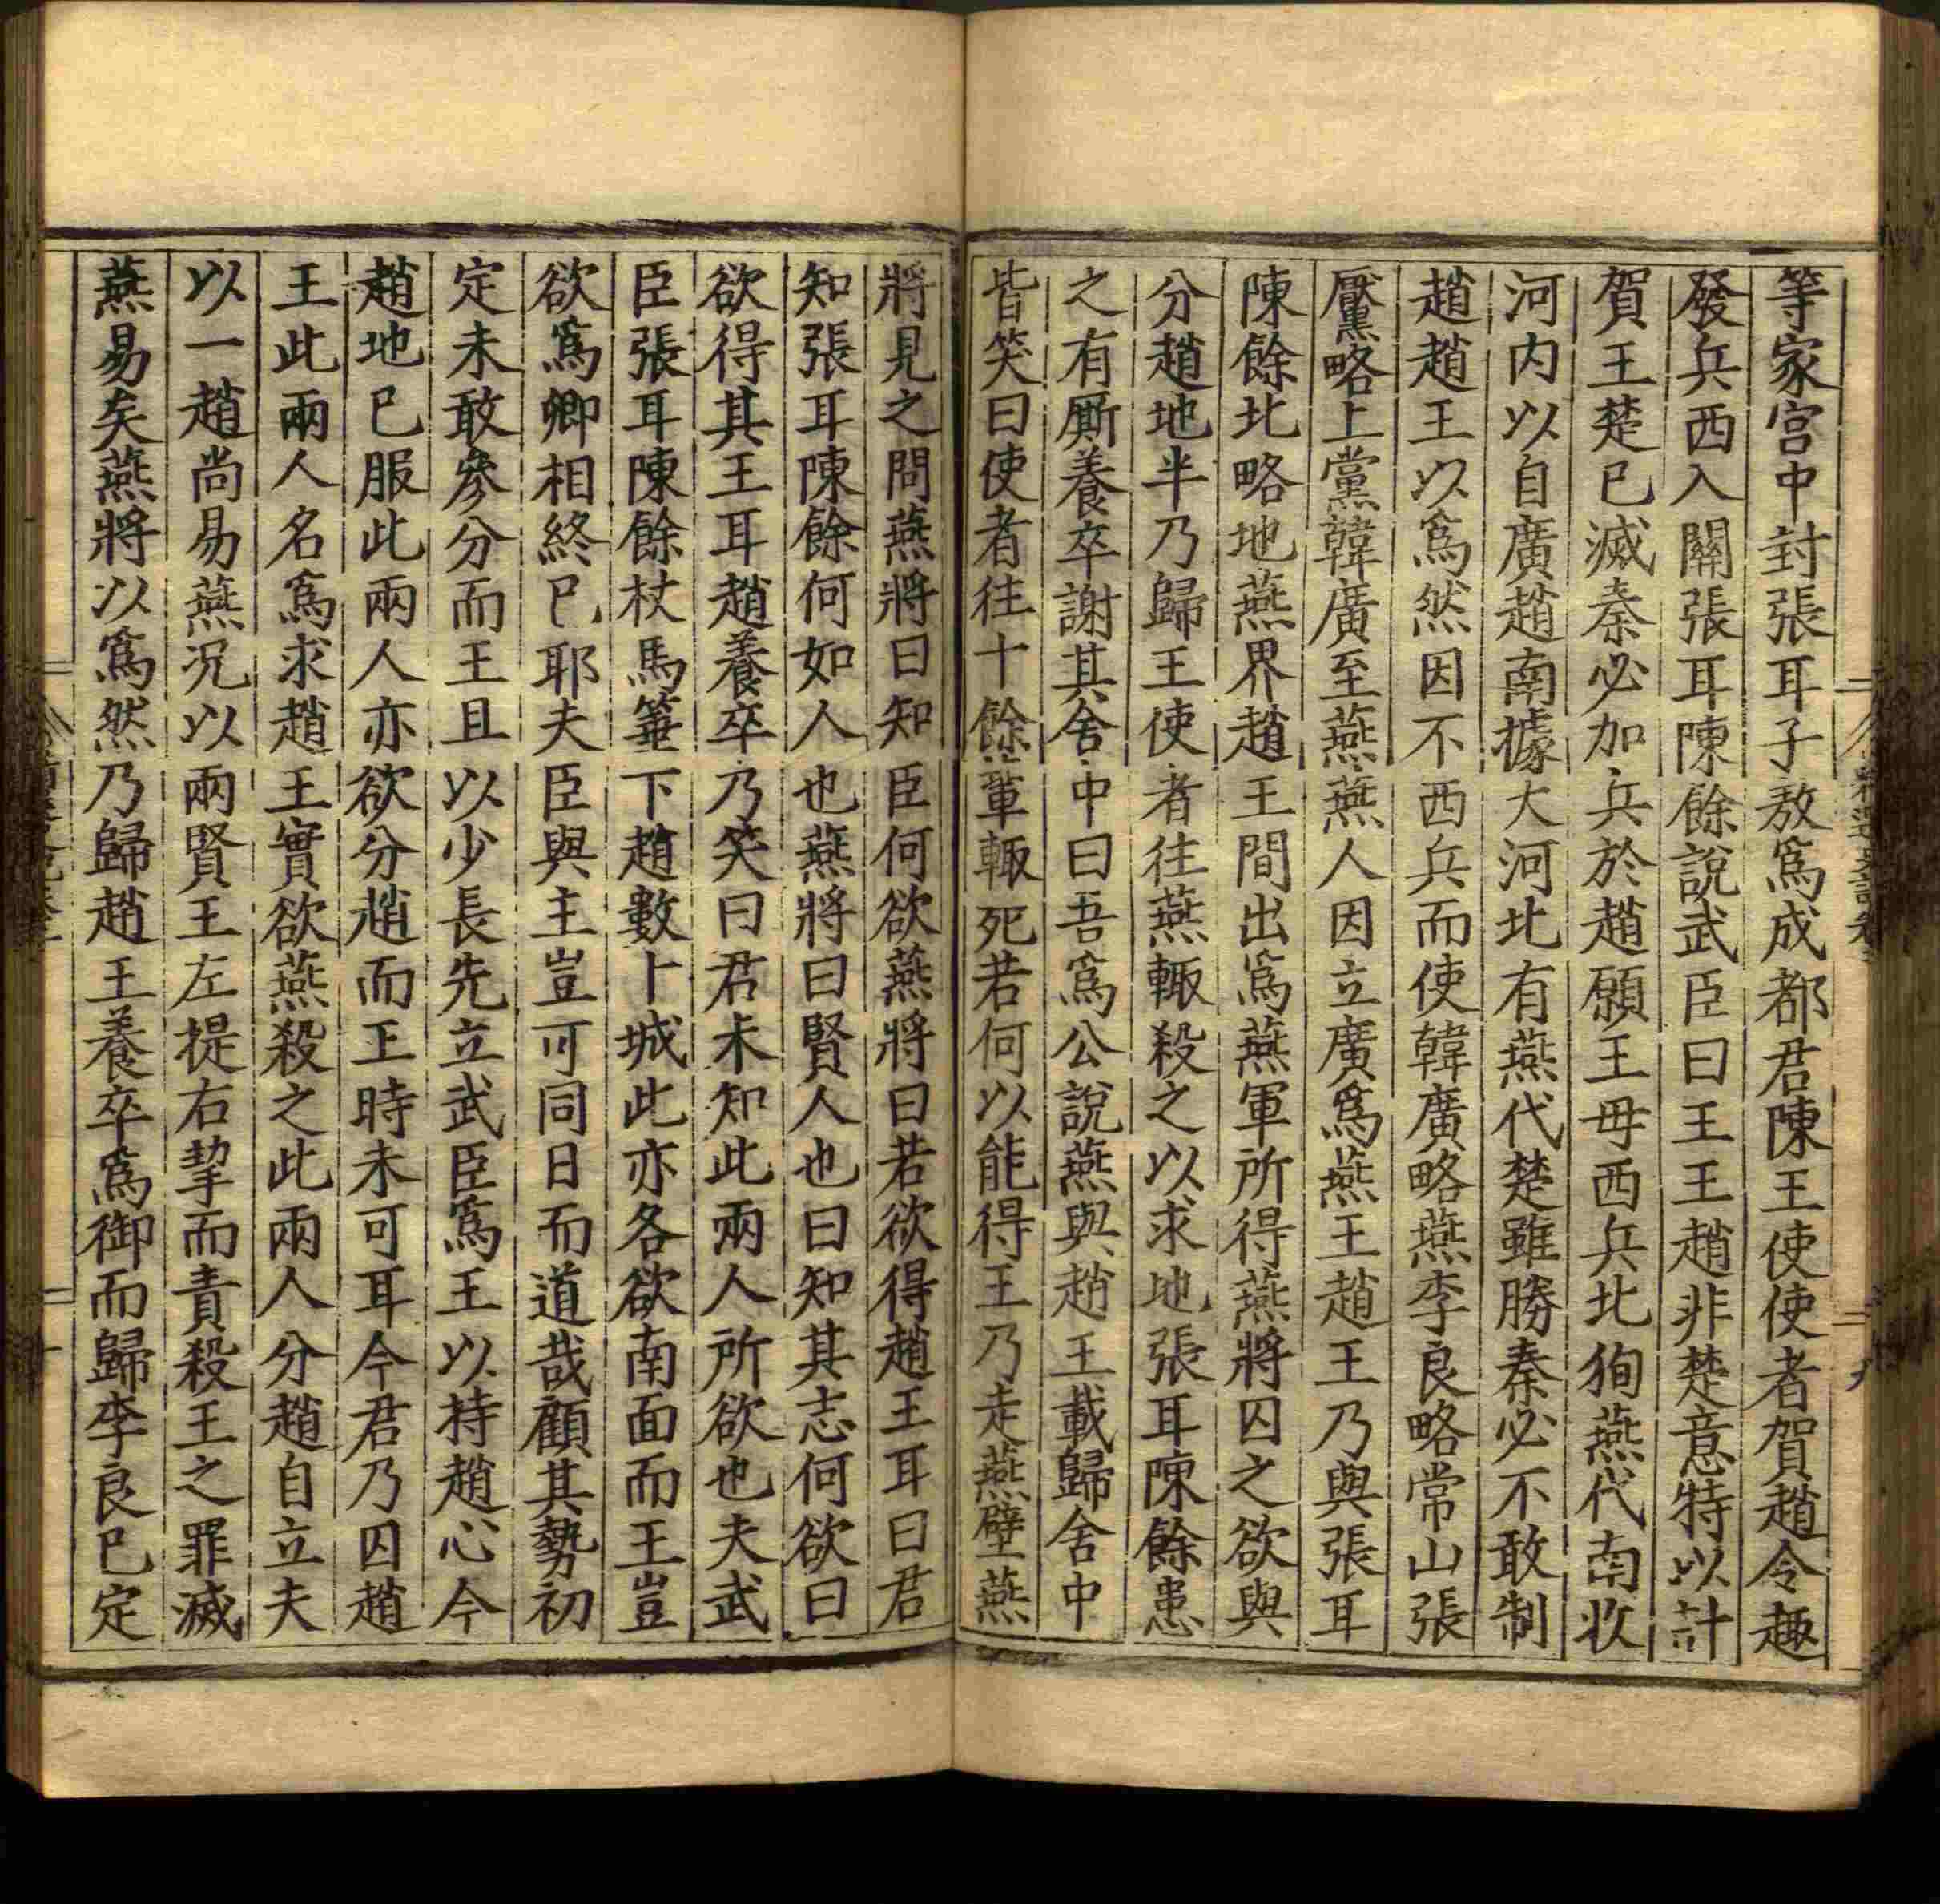 等家宫中封張耳子敖爲成都君陳王使使者賀趙令趣
發兵西入關張耳陳餘說武臣曰王王趙非楚意特以計
賀王楚已滅秦必加兵於趙願王毋西兵北徇燕代南收
河内以自廣趙南據大河北有燕代楚雖勝秦必不敢制
趙趙王以爲然因不西兵而使韓廣略燕李良略常山張
黶略上黨韓廣至燕燕人因立廣爲燕王趙王乃與張耳
陳餘北略地燕界趙王間出爲燕軍所得燕將囚之欲與
分趙地半乃歸王使者往燕輒殺之以求地張耳陳餘患
之有厮養卒謝其舍中曰吾爲公說燕與趙王載歸舍中
皆笑曰使者往十餘輩輒死若何以能得王乃走燕壁燕
將見之問燕將曰知臣何欲燕將曰若欲得趙王耳曰君
知張耳陳餘何如人也燕將曰賢人也曰知其志何欲曰
欲得其王耳趙養卒乃笑曰君未知此兩人所欲也夫武
臣張耳陳餘杖馬箠下趙數十城此亦各欲南面而王豈
欲爲卿相終已耶夫臣與主豈可同日而道哉顧其勢初
定未敢參分而王且以少長先立武臣爲王以持趙心今
趙地已服此兩人亦欲分趙而王時未可耳今君乃囚趙
王此兩人名爲求趙王實欲燕殺之此兩人分趙自立夫
以一趙尚易燕况以兩賢王左提右挈而責殺王之罪滅
燕易矣燕將以爲然乃歸趙王養卒爲御而歸李良已定